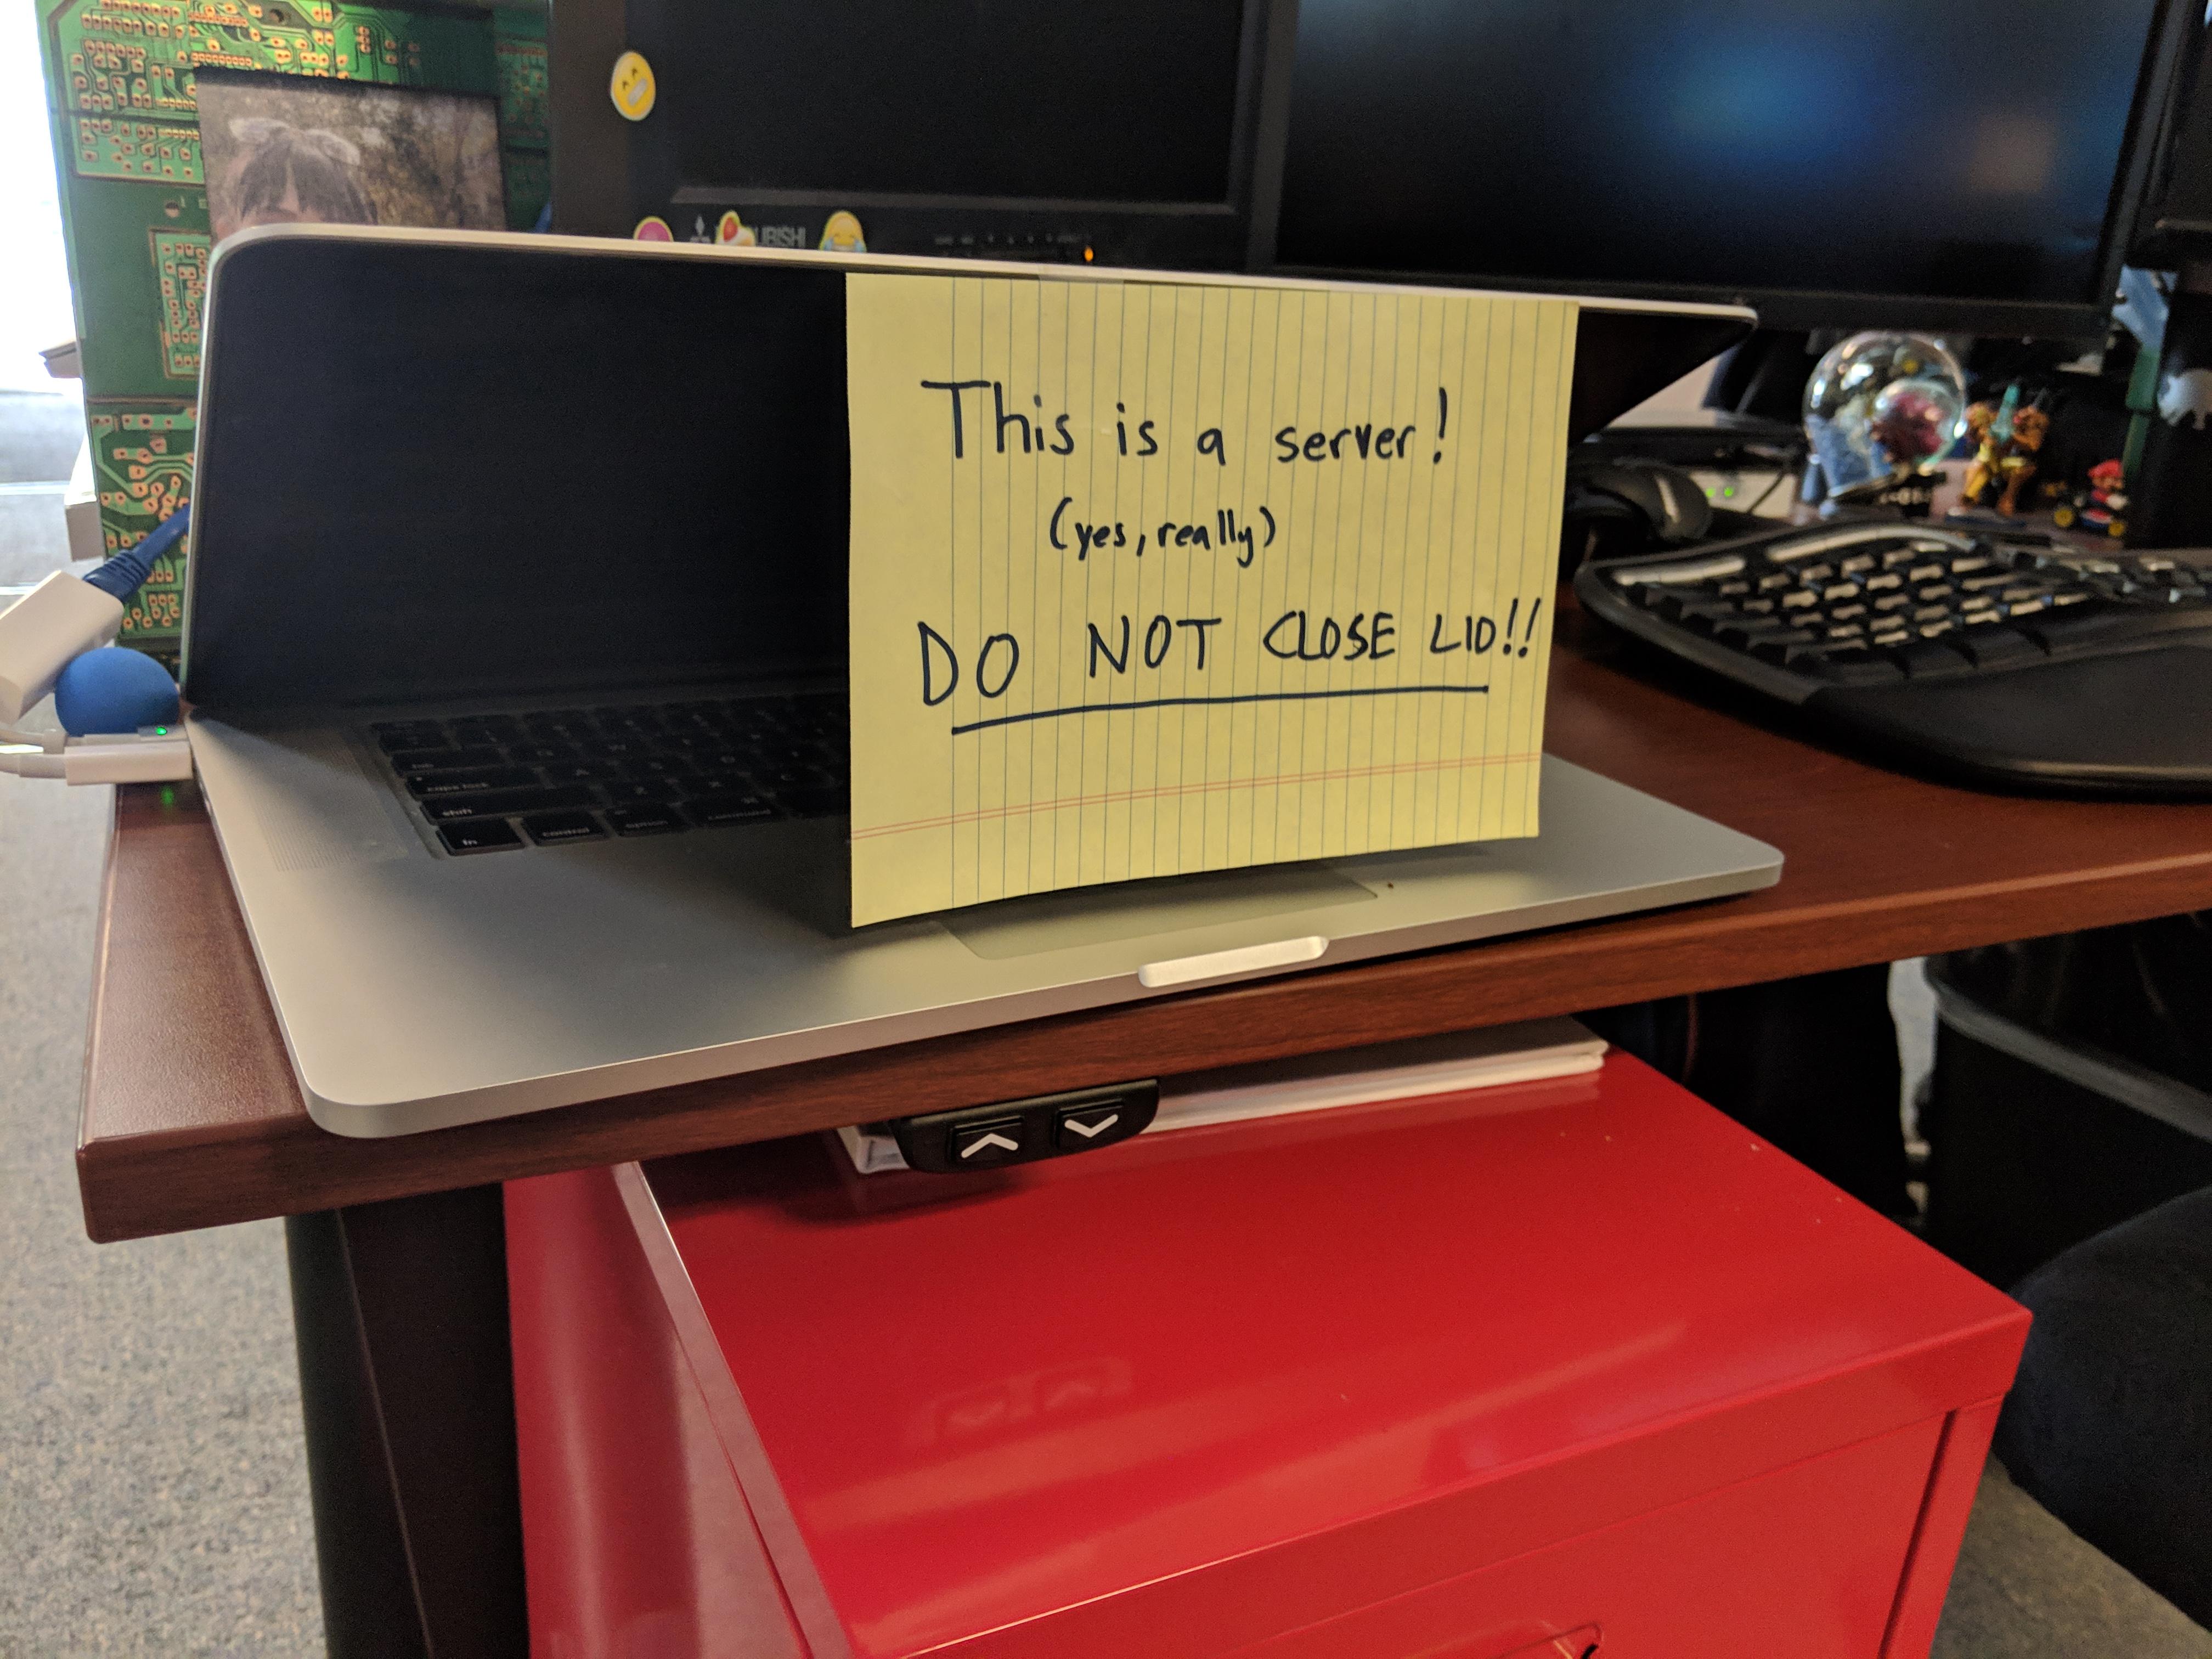 This is a server!
(yes, really)
DO NOT CLOSE LID!!
caps lock
shift
fn
control
option
command